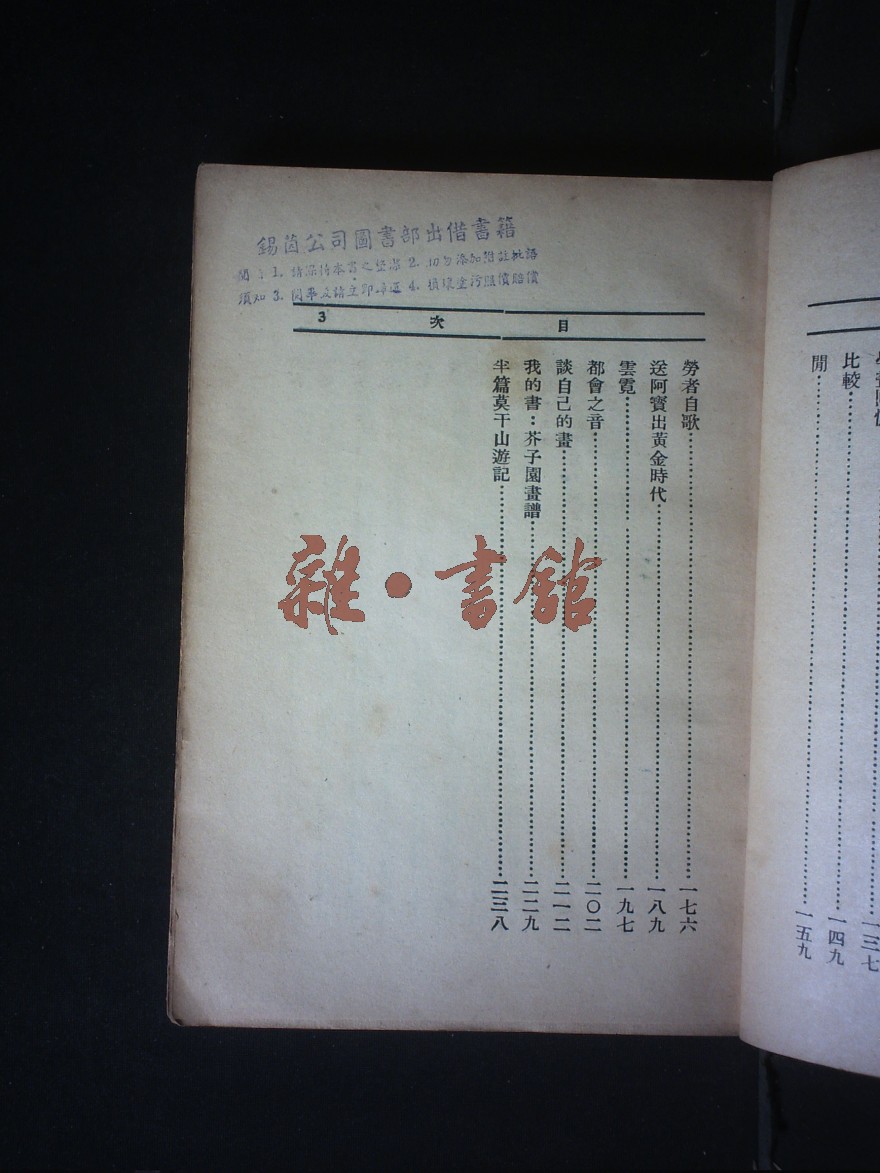 錫茵公司圖書部出借書籍
1. 請深待本書之整潔 2. 切勿添加附註批語
須知 3. 閱畢及請立即歸還 4. 損壞塗污照價賠償
目 次 3
勞者自歌 一七六
送阿寶出黃金時代 一八九
雲霓 一九七
都會之音 二〇二
談自己的畫 二一二
我的書：芥子園畫譜 二二九
半篇莫干山遊記 二三八
一三七
比較 一四九
閒 一五九
雜・書館